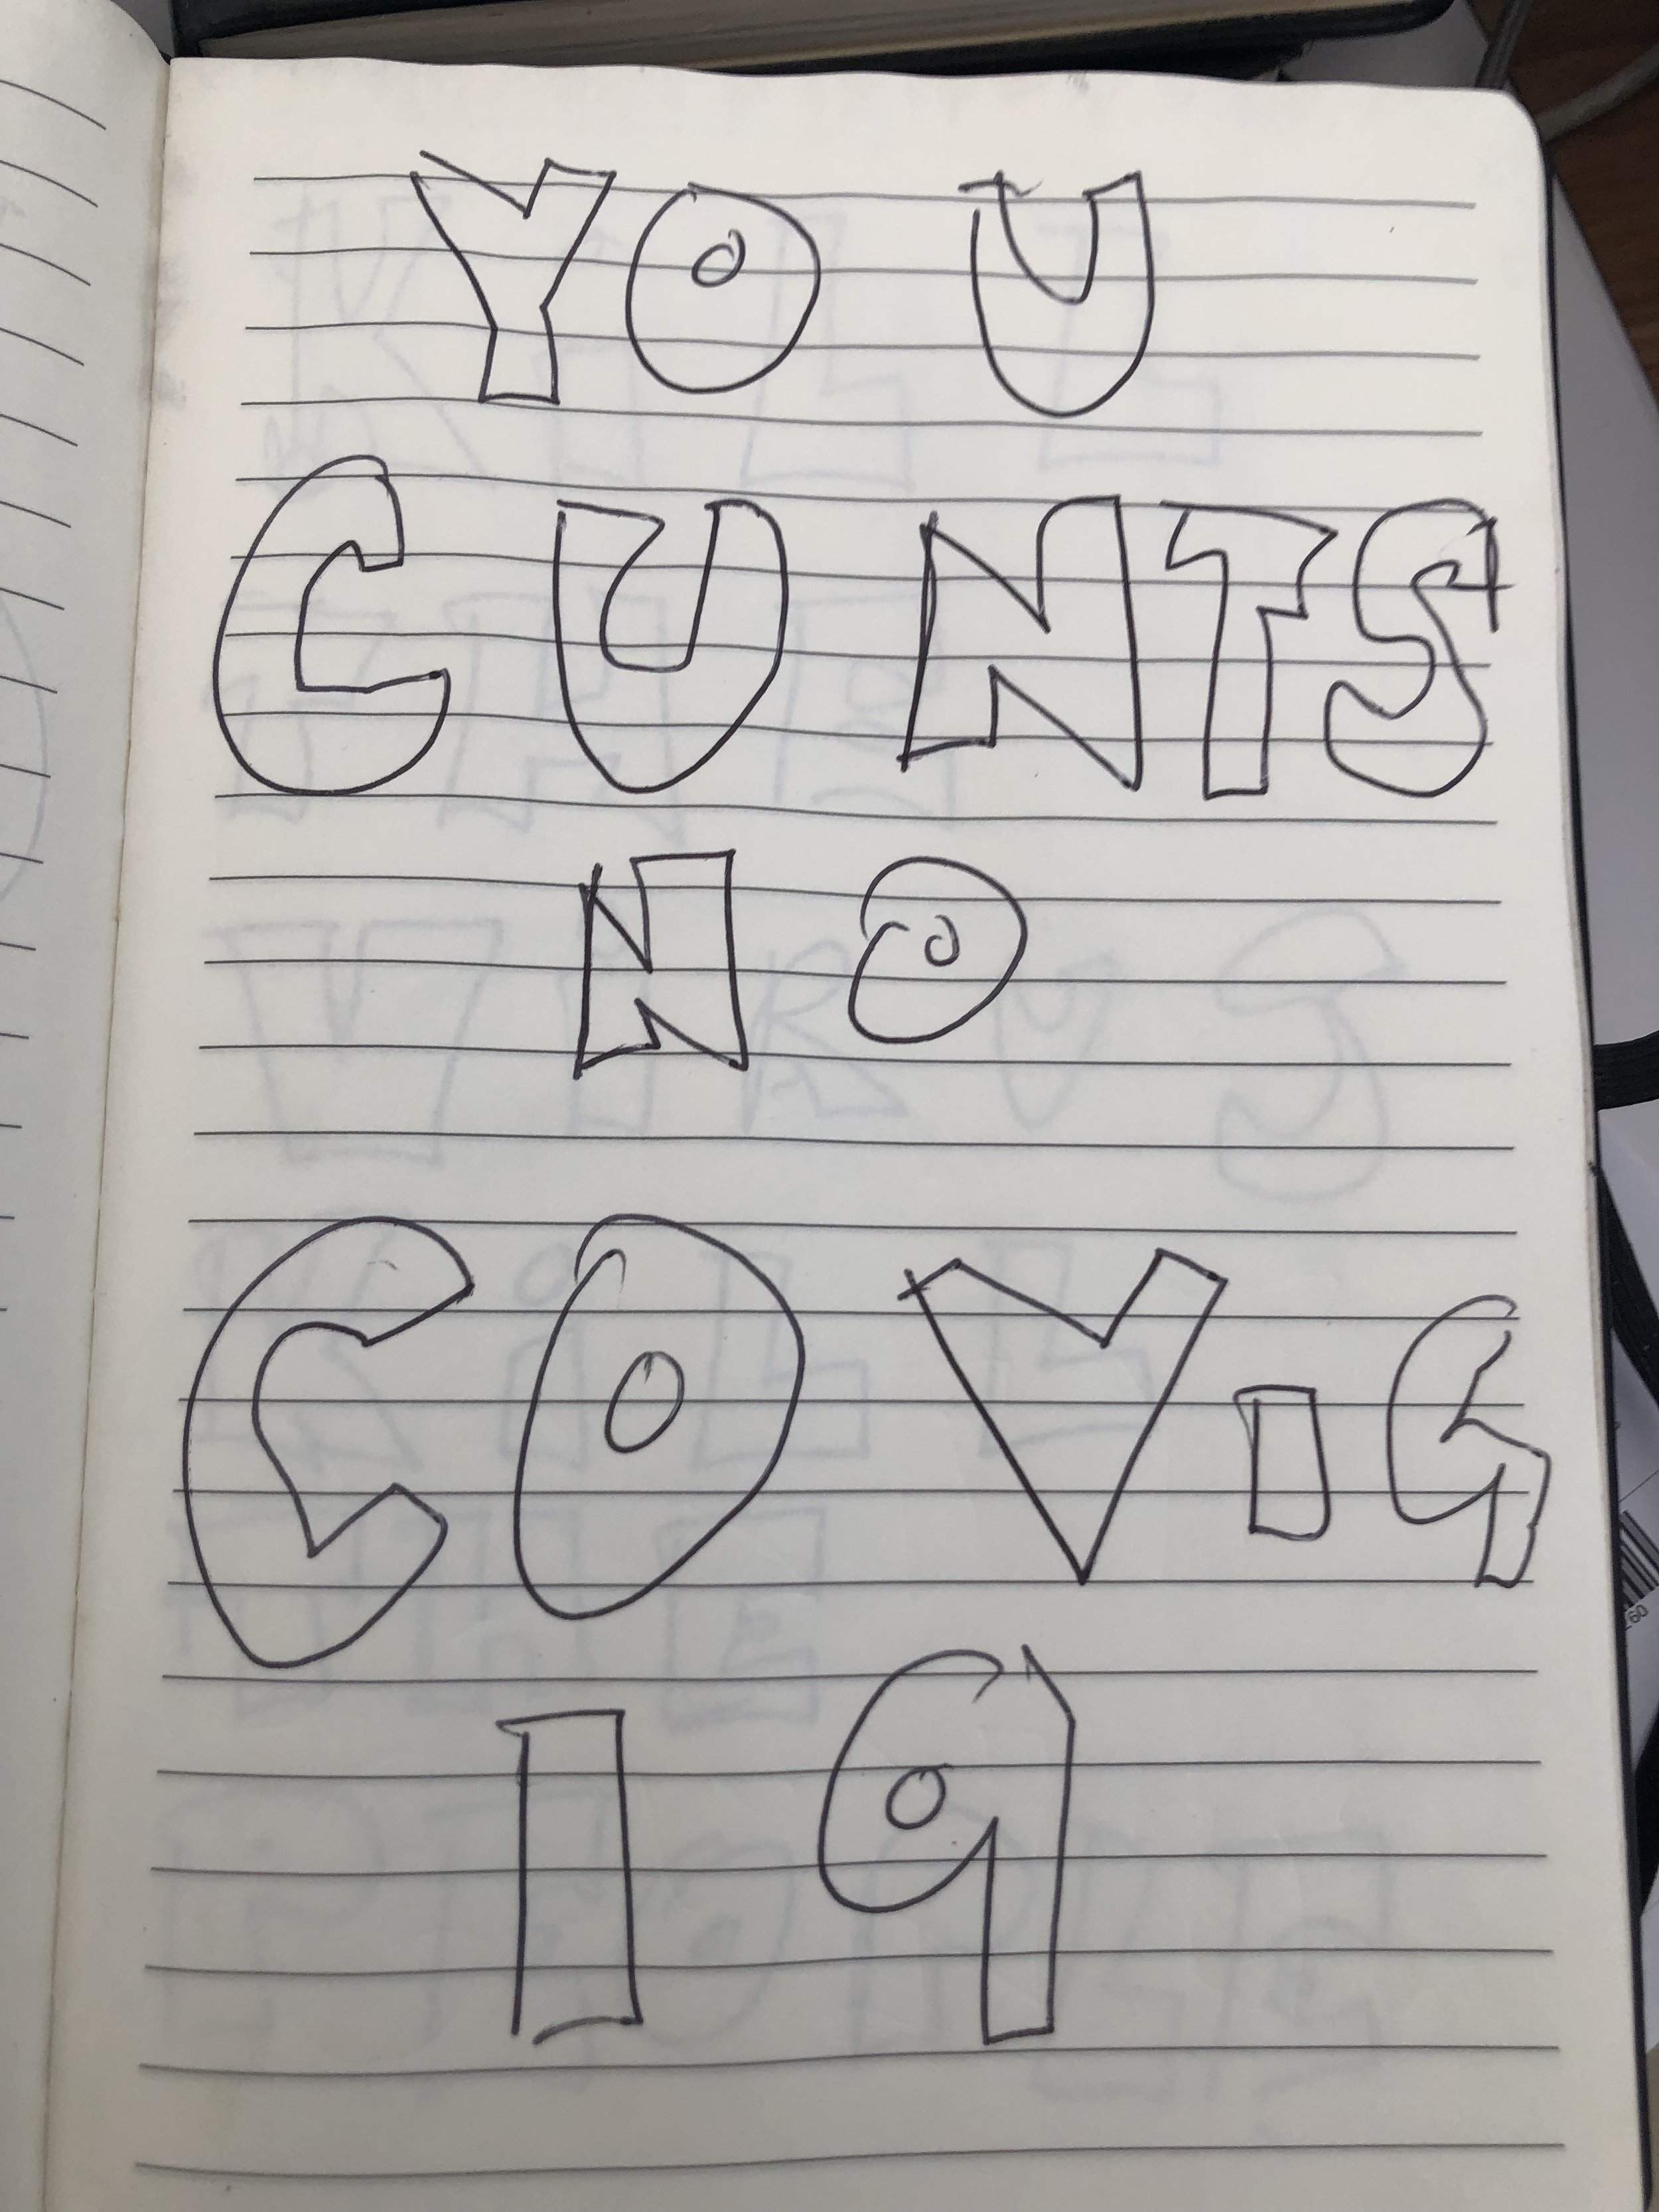 YOU
CUNTS
NO
COVIG
19